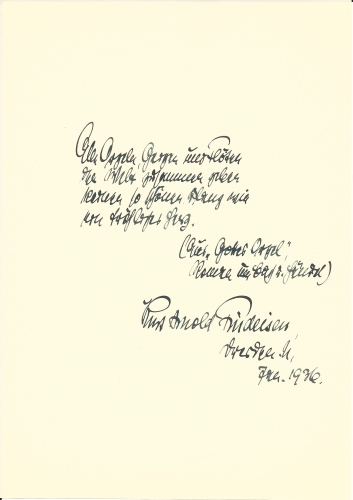 Alle Orgeln, Geigen und Flöten
der Welt zusammen geben
keinen so schönen Klang wie
ein fröhliches Herz.
(Aus „Gottes Orgel“,
Roman um Bach u. Händel)
Kurt Arnold Findeisen,
Dresden A,
Jan. 1936.